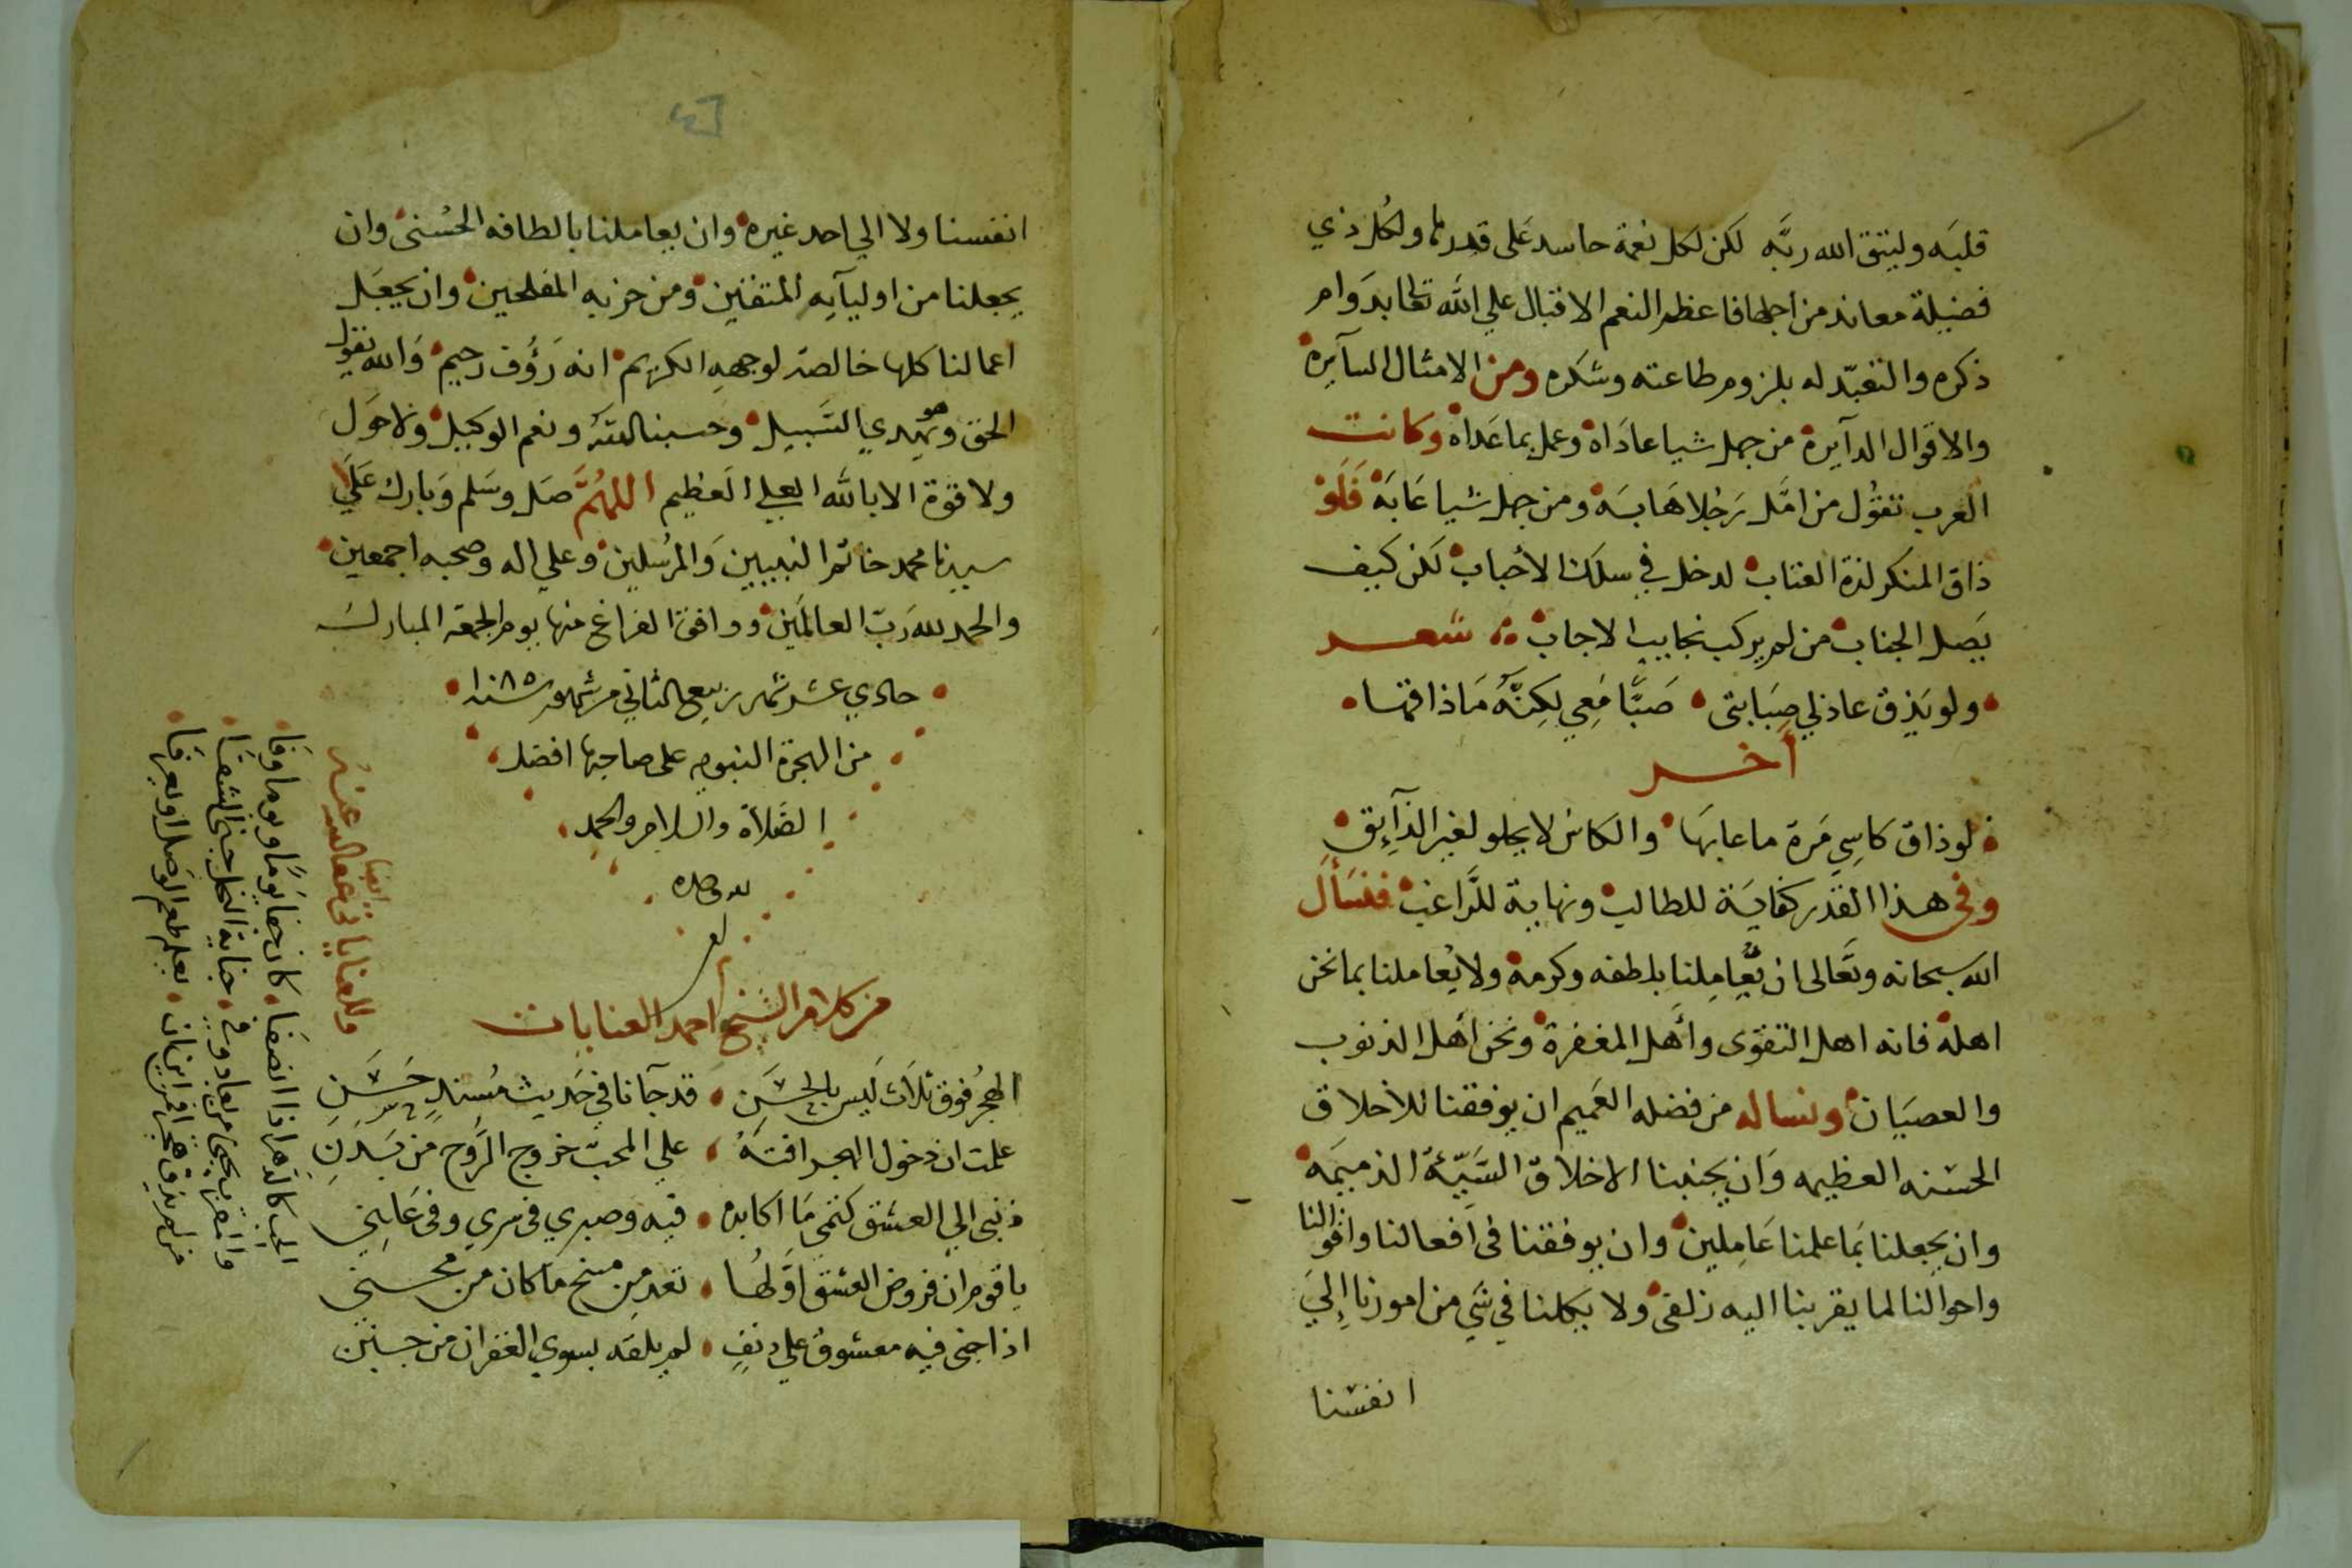 قلبه وليتق الله ربه لكن لكل نعمة حاسد على قدرها ولكل ذي
فضيلة معاند من اجلها فاعظم النعم الاقبال علي الله تعالى بدوام
ذكره والتعبد له بلزوم طاعته وشكره ومن الامثال السآيرة
والاقوال الدآيرة من جهل شيا عاداه وعمل بما عداه وكانت
العرب تقول من امل رجلا هابه ومن جهل شيا عابه فلو
ذاق المنكر لذة العتاب لدخل في سلك الأحباب لكن كيف
يصل الجناب من لم يركب نجايب الاجاب شعر
ولو يذق عاذلي صبابتى صبا معي لكنه ما ذاقها
أخر
لو ذاق كاسي مرة ما عابها والكاس لا يحلو لغير الذآيق
وفي هذا القدر كفاية للطالب ونهاية للراغب فنسأل
الله سبحانه وتعالى ان يعاملنا بلطفه وكرمه ولا يعاملنا بما نحن
اهله فانه اهل التقوى وأهل المغفرة ونحن أهل الذنوب
والعصيان ونساله من فضله العميم ان يوفقنا للاخلاق
الحسنه العظيمه وان يجنبنا الاخلاق السيئة الذميمه
وان يجعلنا بما علمنا عاملين وان يوفقنا في افعالنا واقوالنا
واحوالنا لما يقربنا اليه زلفى ولا يكلنا في شي من امورنا إلي
انفسنا
انفسنا ولا الي احد غيره وان يعاملنا بالطافه الحسنى وان
يجعلنا من اوليآيه المتقين ومن حزبه المفلحين وان يجعل
اعمالنا كلها خالصة لوجهه الكريم انه رؤف رحيم والله يقول
الحق وهو يهدي السبيل وحسبنا الله ونعم الوكيل ولا حول
ولا قوة الا بالله العلي العظيم اللهم صل وسلم وبارك على
سيدنا محمد خاتم النبيين والمرسلين وعلي اله وصحبه اجمعين
والحمد لله رب العالمين ووافق الفراغ منها يوم الجمعة المبارك
حادي عشر شهر ربيع الثاني من شهور سنة ١٠٨٥
من الهجرة النبويه على صاحبها افضل
الصلاة والسلام والحمد
لله وحده
من كلام الشيخ احمد العنايات
الهجر فوق ثلاث ليس بالحسن قد جآنا في حديث مسند حسن
علمت ان دخول الهجر افته علي المحب خروج الروح من بدن
ذنبى الي العشق كتمي ما اكابده فيه وصبري في سري وفي علني
يا قوم ان فروض العشق اولها تعد من منح ما كان من محن
اذا جنى فيه معشوق علي دنف لم يلقه بسوي الغفران من حسن
وللعناياتي عفى الله عنه
ايضا
الحب كالدهر اذا انصفا كان جفا يوما ويوما وفا
من لم يذق هجرا فمن اين ان يعلم طعم الوصل او يعرفا